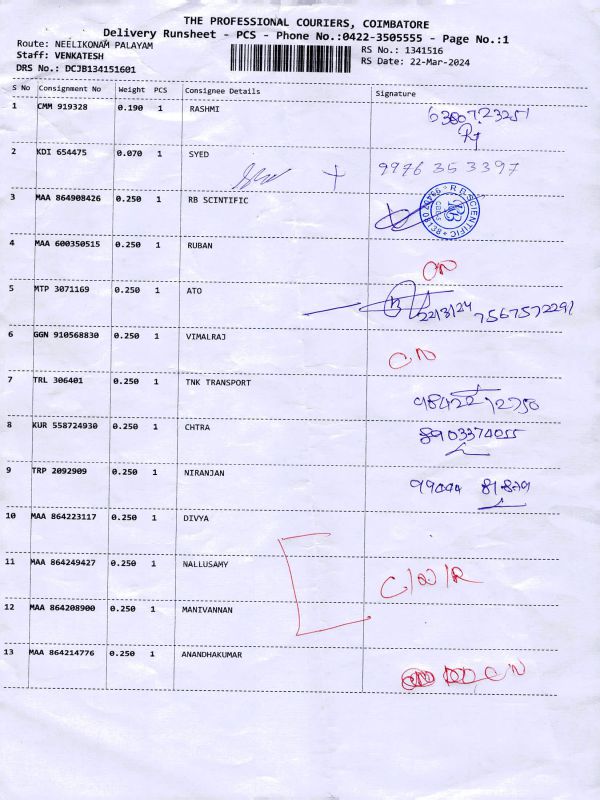 THE PROFESSIONAL COURIERS, COIMBATORE
Delivery Runsheet - PCS - Phone No.:0422-3505555 - Page No.:1
Route: NEELIKONAM PALAYAM
RS No.: 1341516
Staff: VENKATESH
RS Date: 22-Mar-2024
DRS No.: DCJB134151601
S No Consignment No Weight PCS Consignee Details Signature
1 CMM 919328 0.190 1 RASHMI
2 KDI 654475 0.070 1 SYED 9976 353397
3 MAA 864908426 0.250 1 RB SCINTIFIC
4 MAA 600350515 0.250 1 RUBAN
5 MTP 3071169 0.250 1 ATO
22/3/24 7567572291
6 GGN 910568830 0.250 1 VIMALRAJ
7 TRL 306401 0.250 1 TNK TRANSPORT
8 KUR 558724930 0.250 1 CHTRA 8903374055
9 TRP 2092909 0.250 1 NIRANJAN
10 MAA 864223117 0.250 1 DIVYA
11 MAA 864249427 0.250 1 NALLUSAMY
C/N/R
12 MAA 864208900 0.250 1 MANIVANNAN
13 MAA 864214776 0.250 1 ANANDHAKUMAR